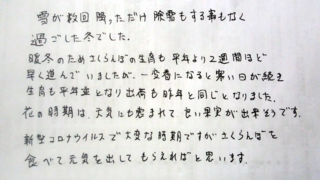 雪が数回降っただけ除雪もする事もなく
過ごした冬でした。
暖冬のためさくらんぼの生育も平年より2週間ほど
早く進んでいましたが、一変春になると寒い日が続き
生育も平年並となり出荷も昨年と同じとなりました。
花の時期は、天気にも恵まれて良い果実が出来そうです。
新型コロナウイルスで大変な時期ですがさくらんぼを
食べて元気を出してもらえればと思います。